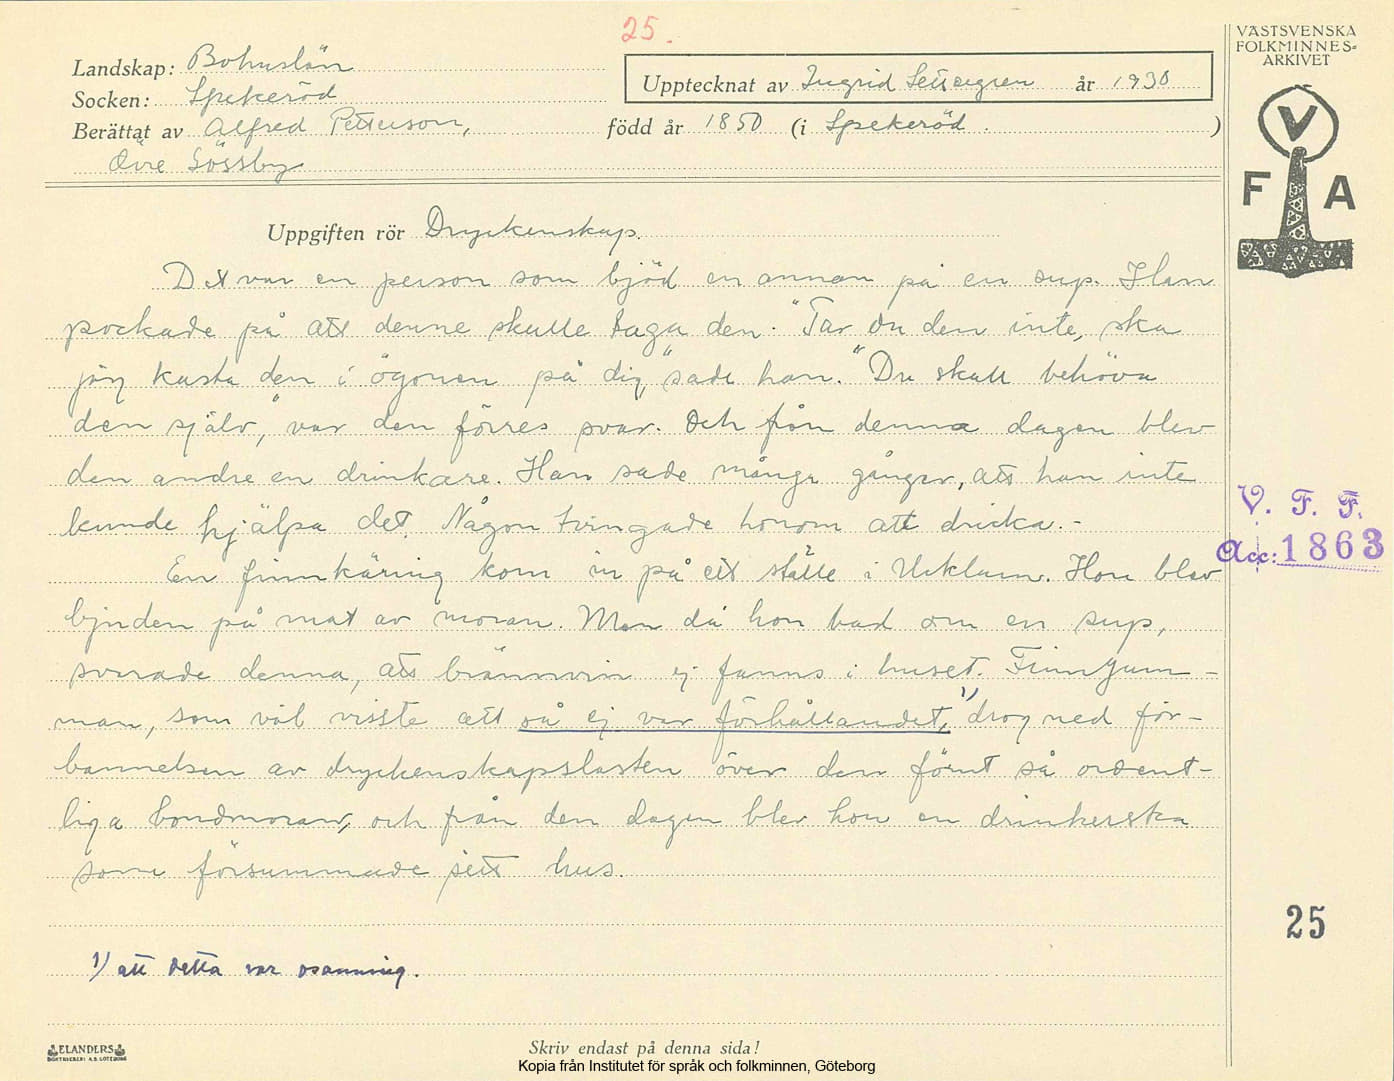 25.
VÄSTSVENSKA
FOLKMINNES-
ARKIVET
V
F A
Landskap: Bohuslän
Socken: Spekeröd
Upptecknat av Ingrid år 1930
Berättat av Alfred Petterson, född år 1850 (i Spekeröd.)
Övre Sössby
Uppgiften rör Dryckenskap.
Det var en person som bjöd en annan på en sup. Han
pockade på att denne skulle taga den. "Tar du den inte, ska
jag kasta den i ögonen på dig," sade han. "Du skall behöva
den själv," var den förres svar. Och från denna dagen blev
den andre en drinkare. Han sade många gånger, att han inte
kunde hjälpa det. Någon tvingade honom att dricka.-
En finnkäring kom in på ett ställe i Ucklum. Hon blev
bjuden på mat av moran. Men då hon bad om en sup,
svarade denna, att brännvin ej fanns i huset. Finngum-
man, som väl visste att så ej var förhållandet, 1) drog ned för-
bannelsen av dryckenskapslasten över den förut så ordent-
liga bondmoran, och från den dagen blev hon en drinkerska
som försummade sett hus.
1) att detta var osanning.
V. F. F.
Acc: 1863
25
ELANDERS
BOKTRYCKERI A.B. GÖTEBORG
Skriv endast på denna sida!
Kopia från Institutet för språk och folkminnen, Göteborg